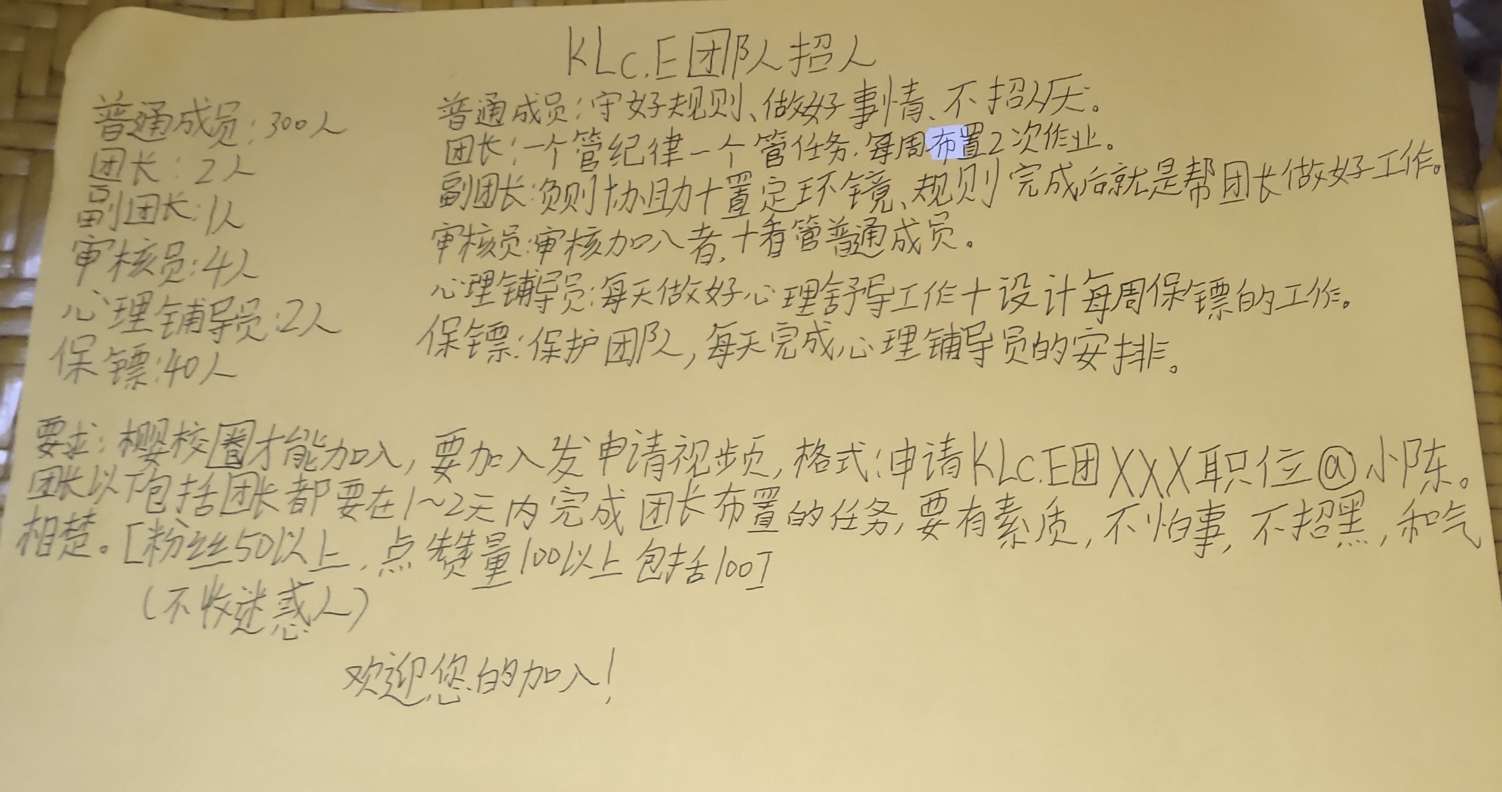 KLc.E团队招人
普通成员:300人
团长:2人
副团长:1人
审核员:4人
心理铺导员:2人
保镖:40人
普通成员:守好规则、做好事情、不招人厌。
团长:一个管纪律一个管任务.每周布置2次作业。
副团长:负则协助+置定环镜、规则 完成后就是帮团长做好工作。
审核员:审核加入者,+看管普通成员。
心理铺导员:每天做好心理舒导工作+设计每周保镖的工作。
保镖:保护团队,每天完成心理铺导员的安排。
要求:樱校圈才能加入,要加入发申请视频,格式:申请KLc.E团XXX职位@小陈。
团长以下包括团长都要在1~2天内完成团长布置的任务,要有素质,不怕事,不招黑,和气
相楚。[粉丝50以上,点赞量100以上包括100]
(不收迷惑人)
欢迎您的加入!